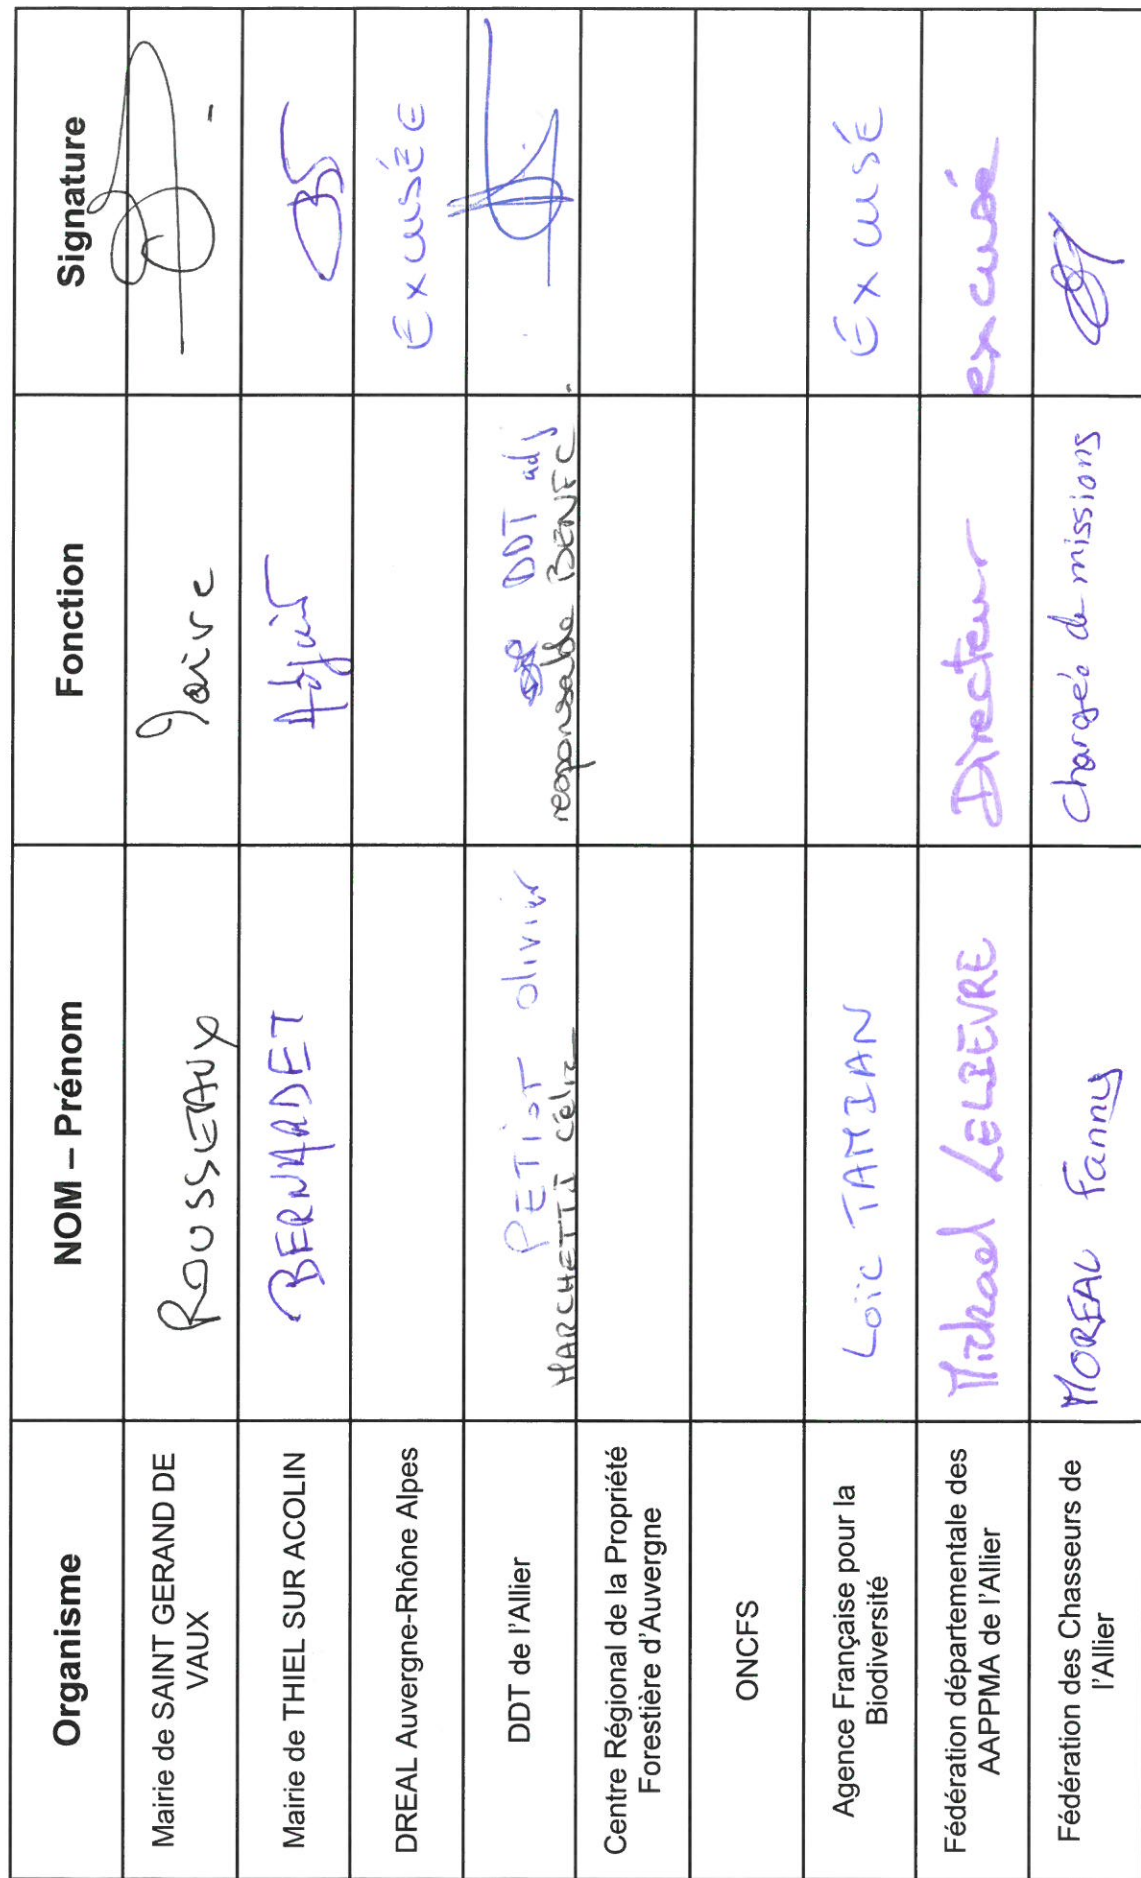 Organisme NOM – Prénom Fonction Signature
Mairie de SAINT GERAND DE
VAUX
ROUSSEAUX Maire
Mairie de THIEL SUR ACOLIN BERNARDET Adjoint
DREAL Auvergne-Rhône Alpes EXCUSÉE
DDT de l'Allier
PETIOT Olivier DDT adj
MARCHETTI Célie responsable BENFC
Centre Régional de la Propriété
Forestière d'Auvergne
ONCFS
Agence Française pour la
Biodiversité
Loïc TAMIAN EXCUSÉ
Fédération départementale des
AAPPMA de l'Allier
Mickael LELIÈVRE Directeur excusé
Fédération des Chasseurs de
l'Allier
MOREAL Fanny Chargée de missions